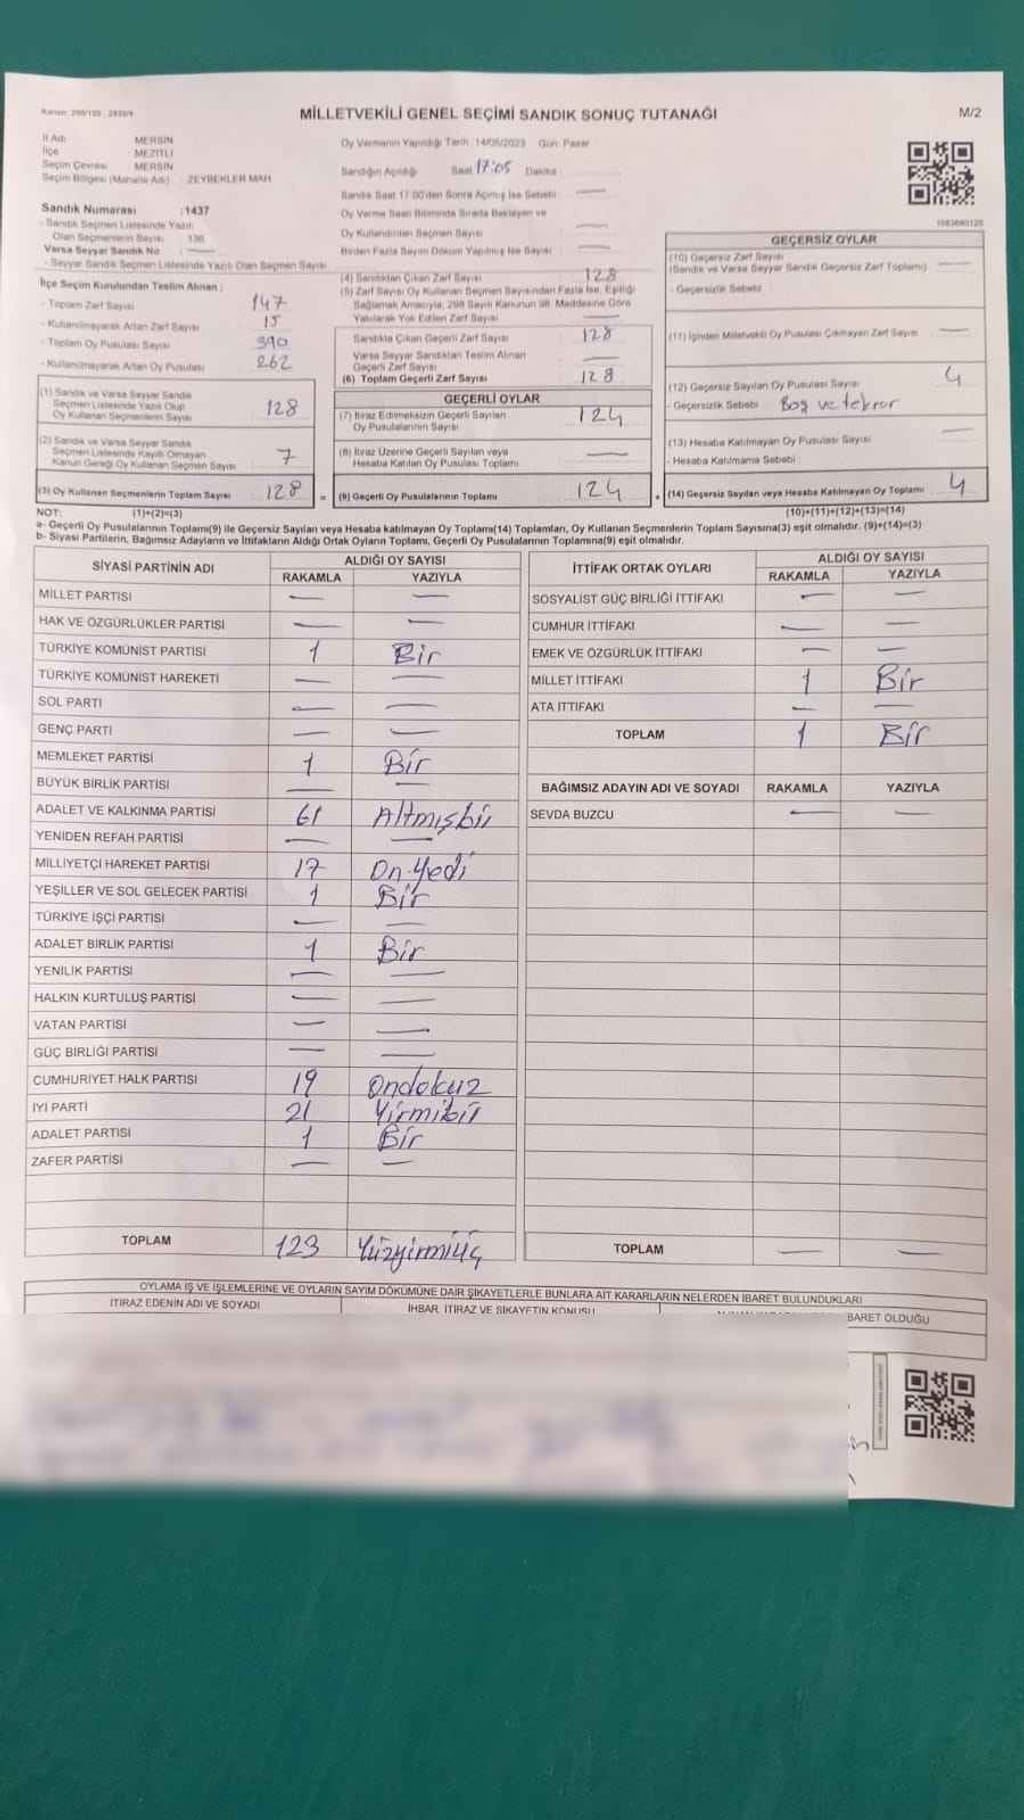 Kanun: 298/105 , 2839/9
MİLLETVEKİLİ GENEL SEÇİMİ SANDIK SONUÇ TUTANAĞI
M/2
İl Adı : MERSİN
İlçe : MEZİTLİ
Seçim Çevresi : MERSİN
Seçim Bölgesi (Mahalle Adı) : ZEYBEKLER MAH.
Sandık Numarası :1437
- Sandık Seçmen Listesinde Yazılı
Olan Seçmenlerin Sayısı : 136
Varsa Seyyar Sandık No :
- Seyyar Sandık Seçmen Listesinde Yazılı Olan Seçmen Sayısı
İlçe Seçim Kurulundan Teslim Alınan :
- Toplam Zarf Sayısı 147
- Kullanılmayarak Artan Zarf Sayısı 15
- Toplam Oy Pusulası Sayısı 390
- Kullanılmayarak Artan Oy Pusulası 262
(1) Sandık ve Varsa Seyyar Sandık
Seçmen Listesinde Yazılı Olup
Oy Kullanan Seçmenlerin Sayısı 128
(2) Sandık ve Varsa Seyyar Sandık
Seçmen Listesinde Kayıtlı Olmayan
Kanun Gereği Oy Kullanan Seçmen Sayısı 7
(3) Oy Kullanan Seçmenlerin Toplam Sayısı 128 =
Oy Vermenin Yapıldığı Tarih : 14/05/2023 Gün: Pazar
Sandığın Açılışı Saat 17:05 Dakika
Sandık Saat 17:00'den Sonra Açılmış İse Sebebi —
Oy Verme Saati Bitiminde Sırada Bekleyen ve
Oy Kullandırılan Seçmen Sayısı —
Birden Fazla Sayım Döküm Yapılmış İse Sayısı —
(4) Sandıktan Çıkan Zarf Sayısı 128
(5) Zarf Sayısı Oy Kullanan Seçmen Sayısından Fazla İse, Eşitliği
Sağlamak Amacıyla, 298 Sayılı Kanunun 98. Maddesine Göre
Yakılarak Yok Edilen Zarf Sayısı —
Sandıkta Çıkan Geçerli Zarf Sayısı 128
Varsa Seyyar Sandıktan Teslim Alınan
Geçerli Zarf Sayısı —
(6) Toplam Geçerli Zarf Sayısı 128
GEÇERLİ OYLAR
(7) İtiraz Edilmeksizin Geçerli Sayılan
Oy Pusulalarının Sayısı 124
(8) İtiraz Üzerine Geçerli Sayılan veya
Hesaba Katılan Oy Pusulası Toplamı —
(9) Geçerli Oy Pusulalarının Toplamı 124 +
GEÇERSİZ OYLAR
(10) Geçersiz Zarf Sayısı
(Sandık ve Varsa Seyyar Sandık Geçersiz Zarf Toplamı) —
- Geçersizlik Sebebi :
(11) İçinden Milletvekili Oy Pusulası Çıkmayan Zarf Sayısı —
(12) Geçersiz Sayılan Oy Pusulası Sayısı 4
- Geçersizlik Sebebi : Boş ve tekrar
(13) Hesaba Katılmayan Oy Pusulası Sayısı —
- Hesaba Katılmama Sebebi :
(14) Geçersiz Sayılan veya Hesaba Katılmayan Oy Toplamı 4
NOT: (1)+(2)=(3) (10)+(11)+(12)+(13)=(14)
a- Geçerli Oy Pusulalarının Toplamı(9) ile Geçersiz Sayılan veya Hesaba katılmayan Oy Toplamı(14) Toplamları, Oy Kullanan Seçmenlerin Toplam Sayısına(3) eşit olmalıdır. (9)+(14)=(3)
b- Siyasi Partilerin, Bağımsız Adayların ve İttifakların Aldığı Ortak Oyların Toplamı, Geçerli Oy Pusulalarının Toplamına(9) eşit olmalıdır.
SİYASİ PARTİNİN ADI ALDIĞI OY SAYISI
RAKAMLA YAZIYLA
MİLLET PARTİSİ — —
HAK VE ÖZGÜRLÜKLER PARTİSİ — —
TÜRKİYE KOMÜNİST PARTİSİ 1 Bir
TÜRKİYE KOMÜNİST HAREKETİ — —
SOL PARTİ — —
GENÇ PARTİ — —
MEMLEKET PARTİSİ 1 Bir
BÜYÜK BİRLİK PARTİSİ — —
ADALET VE KALKINMA PARTİSİ 61 Altmışbir
YENİDEN REFAH PARTİSİ — —
MİLLİYETÇİ HAREKET PARTİSİ 17 On yedi
YEŞİLLER VE SOL GELECEK PARTİSİ 1 Bir
TÜRKİYE İŞÇİ PARTİSİ — —
ADALET BİRLİK PARTİSİ 1 Bir
YENİLİK PARTİSİ — —
HALKIN KURTULUŞ PARTİSİ — —
VATAN PARTİSİ — —
GÜÇ BİRLİĞİ PARTİSİ — —
CUMHURİYET HALK PARTİSİ 19 Ondokuz
İYİ PARTİ 21 Yirmibir
ADALET PARTİSİ 1 Bir
ZAFER PARTİSİ — —
TOPLAM 123 Yüzyirmiüç
İTTİFAK ORTAK OYLARI ALDIĞI OY SAYISI
RAKAMLA YAZIYLA
SOSYALİST GÜÇ BİRLİĞİ İTTİFAKI — —
CUMHUR İTTİFAKI — —
EMEK VE ÖZGÜRLÜK İTTİFAKI — —
MİLLET İTTİFAKI 1 Bir
ATA İTTİFAKI — —
TOPLAM 1 Bir
BAĞIMSIZ ADAYIN ADI VE SOYADI RAKAMLA YAZIYLA
SEVDA BUZCU — —
TOPLAM — —
OYLAMA İŞ VE İŞLEMLERİNE VE OYLARIN SAYIM DÖKÜMÜNE DAİR ŞİKAYETLERLE BUNLARA AİT KARARLARIN NELERDEN İBARET BULUNDUKLARI
İTİRAZ EDENİN ADI VE SOYADI İHBAR, İTİRAZ VE ŞİKAYETİN KONUSU BARET OLDUĞU